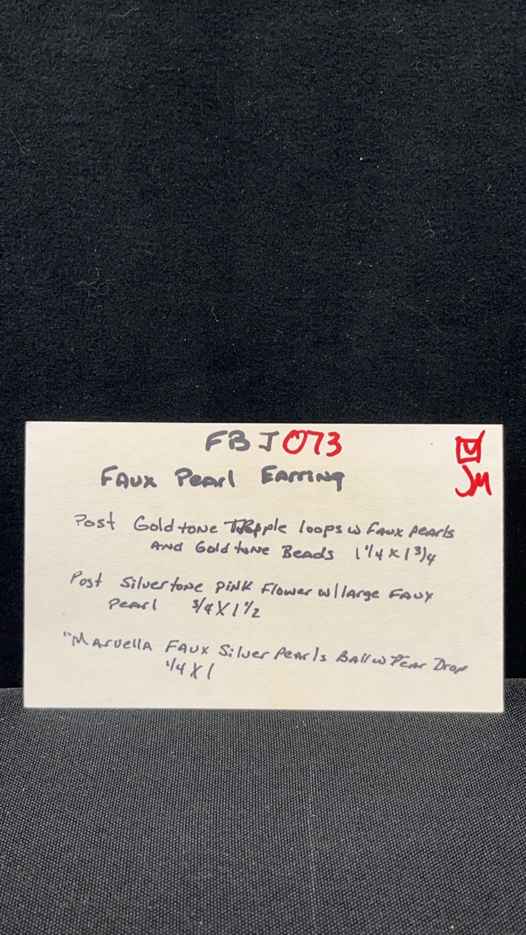 FBJ 073
JM
Faux Pearl Earring
Post Gold tone Tripple loops w Faux pearls
And Gold tone Beads 1 1/4 x 1 3/4
Post Silvertone Pink Flower w/ large Faux
Pearl 3/4 X 1 1/2
"Marvella Faux Silver Pearls Ball w Pear Drop
1/4 X 1